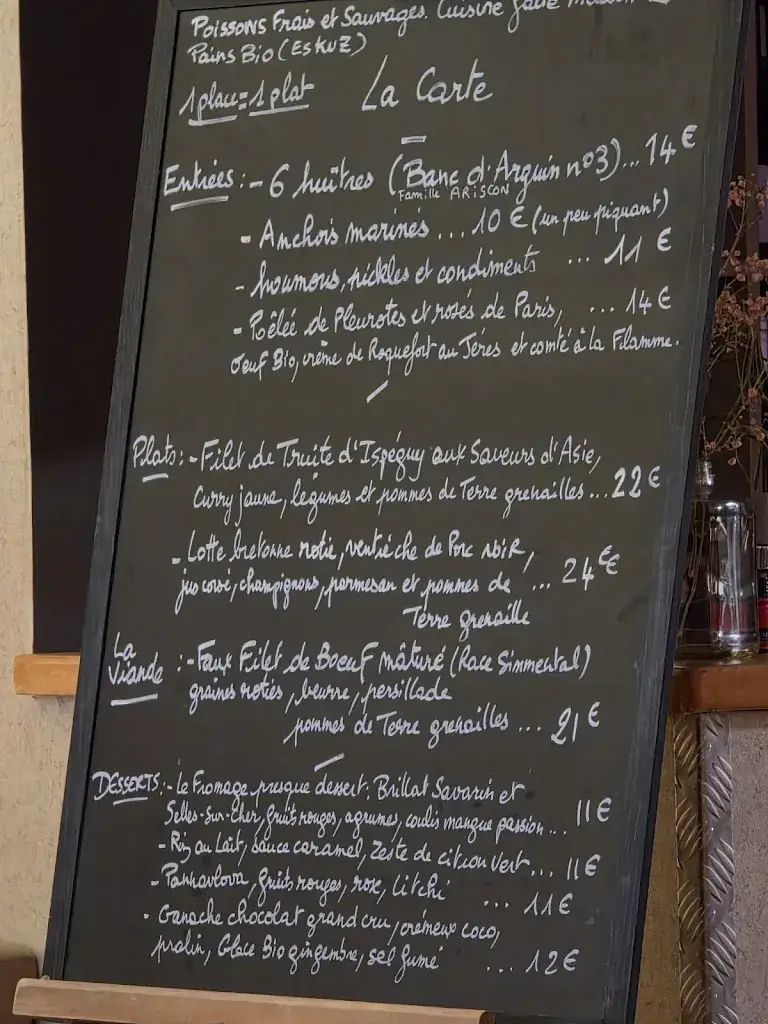 Poissons Frais et Sauvages. Cuisine faite maison
Pains Bio (ESKUZ)
1 place = 1 plat
La Carte
Entrées : - 6 huîtres (Banc d'Arguin n°3)... 14 €
Famille ARISCON
- Anchois marinés ... 10 € (un peu piquant)
- houmous, pickles et condiments ... 11 €
- Poêlée de Pleurotes et rosés de Paris, ... 14 €
Oeuf Bio, crème de Roquefort au Jéres et comté à la Flamme.
Plats : - Filet de Truite d'Ispéguy aux Saveurs d'Asie,
Curry jaune, légumes et pommes de Terre grenailles ... 22 €
- Lotte bretonne rotie, ventrèche de Porc NOIR,
jus corsé, champignons, parmesan et pommes de ... 24 €
Terre grenaille
La Viande : - Faux Filet de Boeuf mâturé (Race Simmental)
graines roties, beurre, persillade
pommes de Terre grenailles ... 21 €
DESSERTS : - Le Fromage presque dessert : Brillat Savarin et
Selles-Sur-Cher, fruits rouges, agrumes, coulis mangue passion ... 11 €
- Riz au Lait, sauce caramel, Zeste de citron vert ... 11 €
- Panhavlova, fruits rouges, rose, litchi ... 11 €
- Ganache chocolat grand cru, crémeux coco,
pralin, Glace Bio gingembre, sel fumé ... 12 €